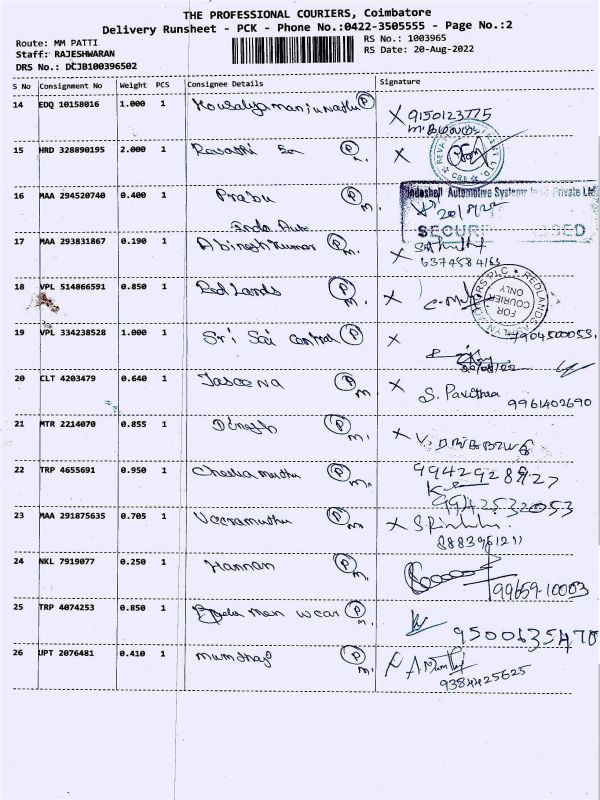 THE PROFESSIONAL COURIERS, Coimbatore
Delivery Runsheet - PCK - Phone No.:0422-3505555 - Page No.:2
Route: MM PATTI
RS No.: 1003965
Staff: RAJESHWARAN
RS Date: 20-Aug-2022
DRS No.: DCJB100396502
S No Consignment No Weight PCS Consignee Details Signature
14 EDQ 10158016 1.000 1 P
9150123775
15 HRD 328890195 2.000 1 P
16 MAA 294520740 0.400 1 Prabu P M.
Indoshell Automotive Systems Private Ltd
Indo Auto
17 MAA 293831867 0.190 1 Abinesh Kumar P M.
6374584165
18 VPL 514866591 0.850 1 Red Lands P M.
REDLANDS
FOR COURIER ONLY
19 VPL 334238528 1.000 1 Sri Sai Central P
7904500053.
20/08/22
20 CLT 4203479 0.640 1 Jaseena P M
S. Pavithra
9961402690
21 MTR 2214070 0.855 1 Dinesh P M.
22 TRP 4655691 0.950 1 P M.
9942928927
9942532053
23 MAA 291875635 0.705 1 Veeramuthu P M.
8883961211
24 NKL 7919077 0.250 1 Hannan P M.
99659-10003
25 TRP 4074253 0.850 1 men wear P M
9500635470
26 UPT 2076481 0.410 1 mumthaj P M.
9384425625